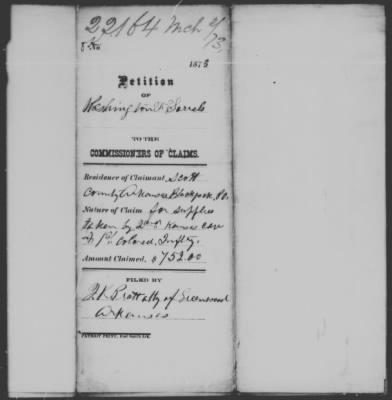 22164 Mch 3/73
No
1873
Petition
OF
Washington Sorrels
TO THE
COMMISSIONERS OF CLAIMS.
Residence of Claimant Scott
County Arkansas P.O.
Nature of Claim for supplies
taken by 2nd Kansas Cav
& 1st Colored Inftry.
Amount Claimed, $752.00
FILED BY
Pratt atty of Greenwood
Arkansas